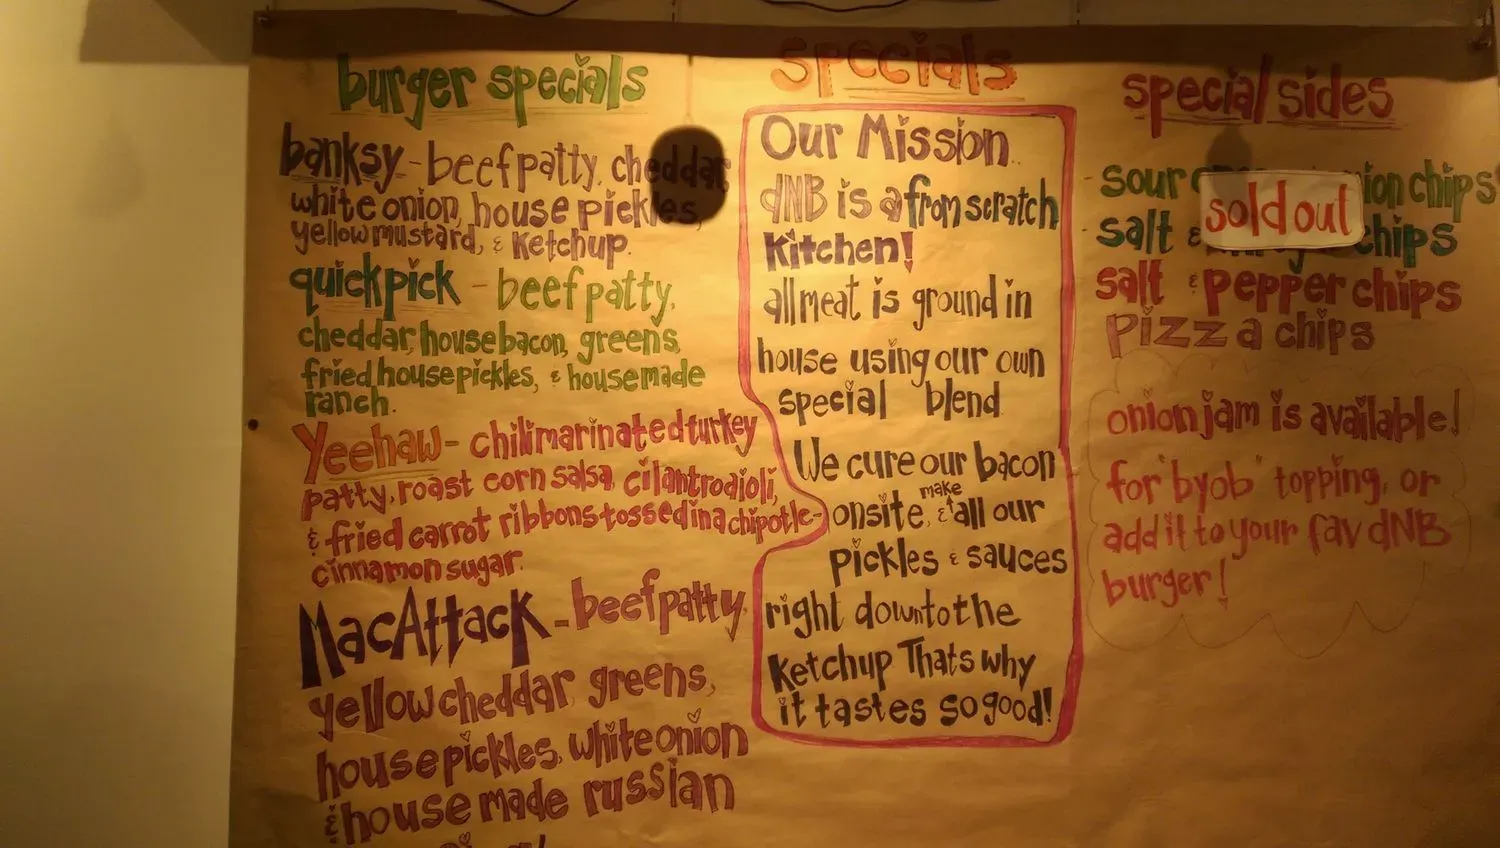 burger specials
banksy - beef patty, cheddar,
white onion, house pickles,
yellow mustard, & ketchup.
quick pick - beef patty,
cheddar, house bacon, greens,
fried house pickles, & housemade
ranch.
Yeehaw - chili marinated turkey
patty, roast corn salsa, cilantro dioli,
& fried carrot ribbons tossed in a chipotle-
cinnamon sugar.
MacAttack - beef patty,
yellow cheddar, greens,
house pickles, white onion
& house made russian
specials
Our Mission
dNB is a from scratch
kitchen!
all meat is ground in
house using our own
special blend
We cure our bacon
onsite, & make all our
pickles & sauces
right down to the
ketchup Thats why
it tastes so good!
special sides
sour ion chips
sold out
salt & chips
salt & pepper chips
pizza chips
onion jam is available!
for "byob" topping, or
add it to your fav dNB
burger!